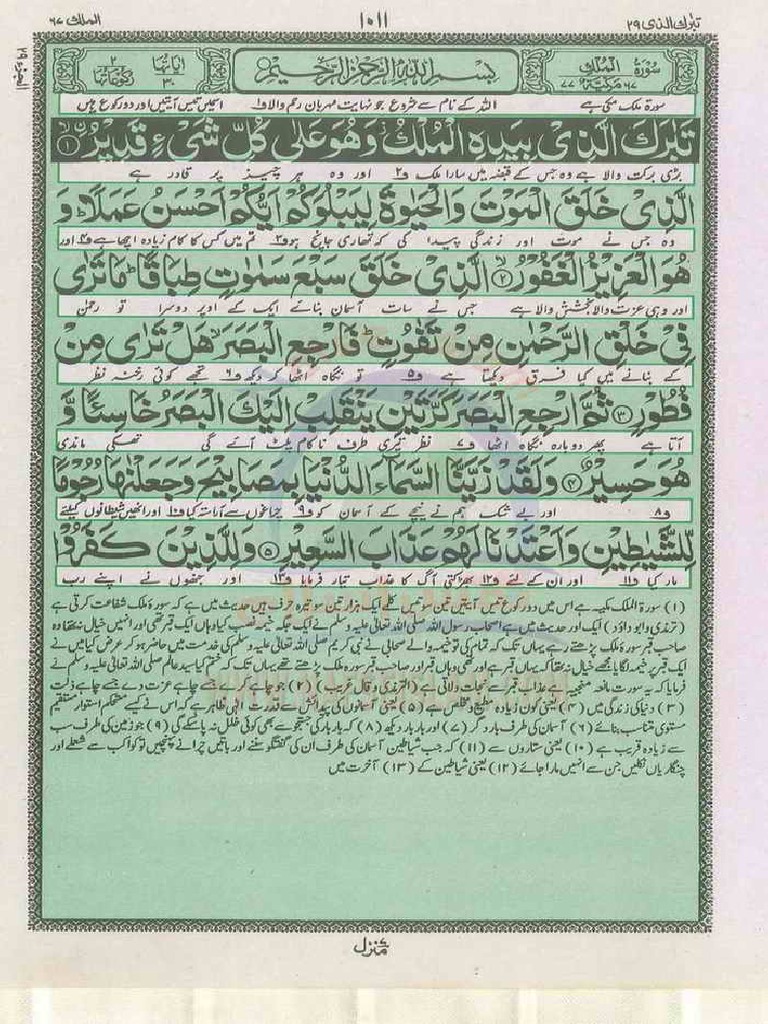 تبٰرك الذی ٢٩
١٠١١
الملك ٦٧
سُوْرَةُ الْمُلْكِ ٦٧ مَكِّيَّةٌ ٧٧
بِسْمِ اللّٰهِ الرَّحْمٰنِ الرَّحِيْمِ
اٰيَاتُهَا ٣٠ رُكُوْعَاتُهَا ٢
سورۃ ملک مکی ہے اللہ کے نام سے شروع جو نہایت مہربان رحم والا ف۱ اسمیں تیس آیتیں اور دو رکوع ہیں
تَبٰرَكَ الَّذِیْ بِیَدِهِ الْمُلْكُ٘ وَ هُوَ عَلٰی كُلِّ شَیْءٍ قَدِیْرُ ۙ﴿۱﴾
بڑی برکت والا ہے وہ جس کے قبضہ میں سارا ملک ف۲ اور وہ ہر چیز پر قادر ہے
الَّذِیْ خَلَقَ الْمَوْتَ وَ الْحَیٰوةَ لِیَبْلُوَكُمْ اَیُّكُمْ اَحْسَنُ عَمَلًا ؕ وَ
وہ جس نے موت اور زندگی پیدا کی کہ تمھاری جانچ ہو ف۳ تم میں کس کا کام زیادہ اچھا ہے ف۴ اور
هُوَ الْعَزِیْزُ الْغَفُوْرُ ۙ﴿۲﴾ الَّذِیْ خَلَقَ سَبْعَ سَمٰوٰتٍ طِبَاقًا ؕ مَا تَرٰی
اور وہی عزت والا بخشش والا ہے جس نے سات آسمان بنائے ایک کے اوپر دوسرا تو رحمٰن
فِیْ خَلْقِ الرَّحْمٰنِ مِنْ تَفٰوُتٍ ؕ فَارْجِعِ الْبَصَرَ ۙ هَلْ تَرٰی مِنْ
کے بنانے میں کیا فرق دیکھتا ہے ف۵ تو نگاہ اٹھا کر دیکھ ف۶ تجھے کوئی رخنہ نظر
فُطُوْرٍ ﴿۳﴾ ثُمَّ ارْجِعِ الْبَصَرَ كَرَّتَیْنِ یَنْقَلِبْ اِلَیْكَ الْبَصَرُ خَاسِئًا وَّ
آتا ہے پھر دوبارہ نگاہ اٹھا ف۷ نظر تیری طرف ناکام پلٹ آئے گی تھکی ماندی
هُوَ حَسِیْرٌ ﴿۴﴾ وَ لَقَدْ زَیَّنَّا السَّمَآءَ الدُّنْیَا بِمَصَابِیْحَ وَ جَعَلْنٰهَا رُجُوْمًا
ف۸ اور بے شک ہم نے نیچے کے آسمان کو ف۹ چراغوں سے آراستہ کیا ف۱۰ اور انھیں شیطانوں کیلئے
لِّلشَّیٰطِیْنِ وَ اَعْتَدْنَا لَهُمْ عَذَابَ السَّعِیْرِ ﴿۵﴾ وَ لِلَّذِیْنَ كَفَرُوْا
مار کیا ف۱۱ اور ان کے لئے ف۱۲ بھڑکتی آگ کا عذاب تیار فرمایا ف۱۳ اور جنھوں نے اپنے رب
(۱) سورۃ الملک مکیہ ہے اس میں دو رکوع تیس آیتیں تین سو تیس کلمے ایک ہزار تین سو تیرہ حرف ہیں حدیث میں ہے کہ سورۂ ملک شفاعت کرتی ہے
(ترمذی و ابو داؤد) ایک اور حدیث میں ہے اصحاب رسول اللہ صلی اللہ تعالیٰ علیہ وسلم نے ایک جگہ خیمہ نصب کیا وہاں ایک قبر تھی اور انھیں خیال نہ تھا وہ
صاحب قبر سورۂ ملک پڑھتے رہے یہاں تک کہ تمام کی تو خیمہ والے صحابی نے نبی کریم صلی اللہ تعالیٰ علیہ وسلم کی خدمت میں حاضر ہو کر عرض کیا میں نے
ایک قبر پر خیمہ لگایا مجھے خیال نہ تھا کہ یہاں قبر ہے اور تھی وہاں قبر اور صاحب قبر سورہ ملک پڑھتے تھے یہاں تک کہ ختم کیا سید عالم صلی اللہ تعالیٰ علیہ وسلم نے
فرمایا کہ یہ سورت مانعہ منجیہ ہے عذاب قبر سے نجات دلاتی ہے (الترمذی و قال غریب) (۲) جو چاہے کرے جسے چاہے عزت دے جسے چاہے ذلت
(۳) دنیا کی زندگی میں (۴) یعنی کون زیادہ مطیع و مخلص ہے (۵) یعنی آسمانوں کی پیدائش سے قدرت الٰہی ظاہر ہے کہ اس نے کیسے مستحکم استوار مستقیم
مستوی متناسب بنائے (۶) آسمان کی طرف بار دگر (۷) اور بار بار دیکھ (۸) کہ بار بار کی جستجو سے بھی کوئی خلل نہ پا سکے گی (۹) جو زمین کی طرف سب
سے زیادہ قریب ہے (۱۰) یعنی ستاروں سے (۱۱) کہ جب شیاطین آسمان کی طرف ان کی گفتگو سننے اور باتیں چرانے پہنچیں تو کواکب سے شعلے اور
چنگاریاں نکلیں جن سے انہیں مارا جائے (۱۲) یعنی شیاطین کے (۱۳) آخرت میں
منزل